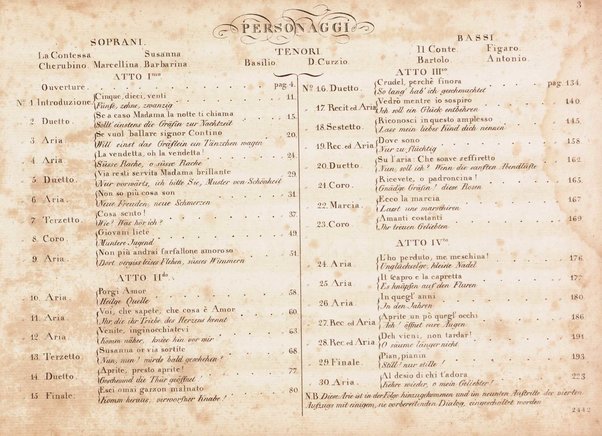 3
PERSONAGGI
SOPRANI.
La Contessa Susanna
Cherubino. Marcellina. Barbarina
TENORI
Basilio. D. Curzio.
BASSI.
Il Conte. Figaro.
Bartolo. Antonio.
ATTO I.mo
Ouverture. pag 4.
No 1 Introduzione. Cinque, dieci, venti 11.
Fünfe, zehne, zwanzig
2. Duetto. Se a caso Madama la notte ti chiama 15.
Sollt' einstens die Gräfin zur Nachtzeit
3. Aria Se vuol ballare signor Contino 20.
Will einst das Gräflein ein Tänzchen wagen
4. Aria La vendetta, oh la vendetta! 24.
Süsse Rache, o süsse Rache
5. Duetto. Via resti servita Madama brillante 29.
Nur vorwärts, ich bitte Sie, Muster von Schönheit
6. Aria. Non so più cosa son 31.
Neue Freuden, neue Schmerzen
7. Terzetto. Cosa sento! 37.
Wie? Was hör ich?
8. Coro. Giovani liete 49.
Muntere Jugend
9. Aria Non più andrai farfallone amoroso 51.
Dort vergiss leises Flehen, süsses Wimmern
ATTO II.do
10. Aria. Porgi Amor 58.
Heilge Quelle
11. Aria. Voi, che sapete, che cosa è Amor 60.
Ihr die ihr Triebe des Herzens kennt
12. Aria Venite, inginocchiatevi 63.
Komm näher, knie hin vor mir
13. Terzetto. Susanna or via sortite 68.
Nun, nun! wirds bald geschehen!
14. Duetto. Aprite, presto aprite! 77.
Geschwind die Thür geöffnet
15. Finale. Esci omai garzon malnato 80
Komm heraus, verworfner Knabe!
ATTO III.zo
No 16. Duetto. Crudel, perchè finora pag. 134
So lang' hab' ich geschmachtet
17. Recit ed Aria Vedrò mentre io sospiro 140
Ich soll ein Glück entbehren
18. Sestetto. Riconosci in questo amplesso 145
Lass mein liebes Kind dich nennen
19. Rec. ed Aria Dove sono 158
Nur zu flüchtig
20. Duetto. Su l'aria: Che soave zeffiretto 162
Nun, woll ich? Wenn die sanften Abendlüfte
21. Coro. Ricevete, o padroncina! 165
Gnädge Gräfin! diese Rosen
22. Marcia. Ecco la marcia 167
Lasst uns marschiren
23. Coro. Amanti costanti 169
Ihr treuen Geliebten
ATTO IV.to
24. Aria L'ho perduto, me meschina! 176
Unglückselge, kleine Nadel
25. Aria Il capro e la capretta 177
Es knüpfen auf den Fluren
26 Aria In quegl' anni 180
In den Jahren
27. Rec. ed Aria Aprite un pò quegl' occhi 186
Ach! öffnet eure Augen
28. Rec. ed Aria Deh vieni, non tardar! 191
O säume länger nicht
29. Finale. Pian, pianin 193
Still! nur stille!
30. Aria. Al desio di chi t'adora 223
Kehre wieder, o mein Geliebter!
N.B. Diese Arie ist in der Folge hinzugekommen und im neunten Auftritte des vierten
Aufzugs mit einigem, sie vorbereitenden Dialog, eingeschaltet worden
2442